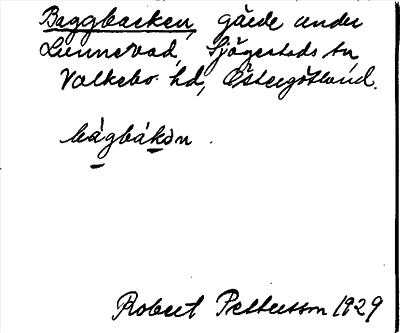 Baggbacken, gärde under
Lunnevad, Sjögestads sn
Valkebo hd, Östergötland.
bàgbákən.
Robert Pettersson 1929